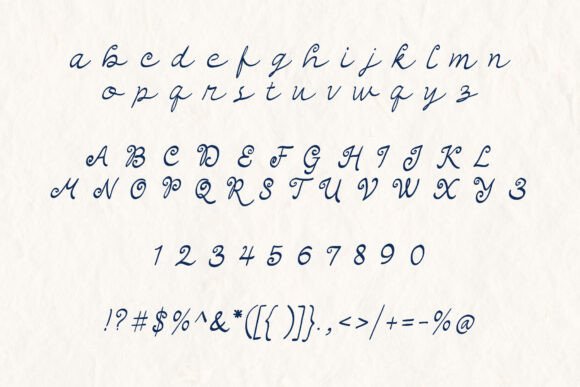 a b c d e f g h i j k l m n
o p q r s t u v w q y z
A B C D E F G H I J K L
M N O P Q R S T U V W X Y Z
1 2 3 4 5 6 7 8 9 0
!?#$%^&*([{ )]}.,<>/+=-%@